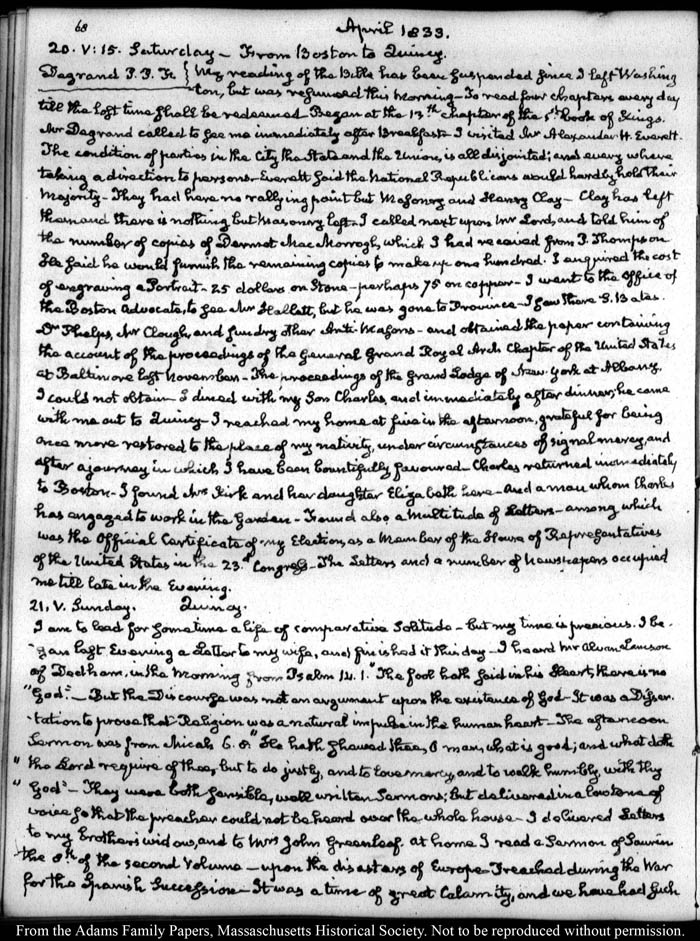 68
April 1833.
20. V:15. Saturday – From Boston to Quincy.
Degrand P. P. F. { My reading of the Bible has been suspended since I left Washing
ton, but was resumed this morning – To read four chapters every day
till the lost time shall be redeemed. Began at the 13th Chapter of the 1st book of Kings.
Mr Degrand called to see me immediately after Breakfast – I visited Mr Alexander H. Everett.
The condition of parties in the City the State and the Union, is all disjointed; and every where
taking a direction to persons – Everett said the National Republicans would hardly hold their
Majority – They had have no rallying point but Masonry and Henry Clay – Clay has left
them and there is nothing but Masonry left – I called next upon Mr Lord, and told him of
the number of copies of Dermot MacMorrogh, which I had received from J. Thompson
He said he would furnish the remaining copies to make up one hundred. I enquired the cost
of engraving a Portrait – 25 dollars on Stone – perhaps 75 on copper – I went to the Office of
the Boston Advocate, to see Mr Hallett, but he was gone to Province – I saw there
Dr Phelps, Mr Clough, and sundry other Anti-Masons – and obtained the paper containing
the account of the proceedings of the General Grand Royal Arch Chapter of the United States
at Baltimore last November – The proceedings of the Grand Lodge of New-York at Albany,
I could not obtain – I dined with my Son Charles, and immediately after dinner, he came
with me out to Quincy – I reached my home at five in the afternoon, grateful for being
once more restored to the place of my nativity, under circumstances of signal mercy, and
after a journey in which I have been bountifully favoured – Charles returned immediately
to Boston – I found Mrs Kirk and her daughter Elizabeth here – And a man whom Charles
has engaged to work in the Garden – Found also a multitude of Letters – among which
was the Official Certificate of my Election, as a Member of the House of Representatives
of the United States in the 23d Congress – The Letters and a number of Newspapers occupied
me till late in the Evening.
21. V. Sunday. Quincy.
I am to lead for some time a life of comparative Solitude – but my time is precious. I be-
gan last Evening a Letter to my wife, and finished it this day – I heard Mr Alvan Lamson
of Dedham, in the Morning from Psalm 14. 1. "The fool hath said in his Heart, there is no
"God." – But the Discourse was not an argument upon the existence of God – It was a Disser-
tation to prove that Religion was a natural impulse in the human heart – The afternoon
Sermon was from Micah 6. 8. "He hath shewed thee, O man, what is good; and what doth
" the Lord require of thee, but to do justly, and to love mercy, and to walk humbly, with thy
" God" – They were both sensible, well written Sermons; but delivered in a low tone of
voice so that the preacher could not be heard over the whole house – I delivered Letters
to my brother's widow, and to Mrs John Greenleaf. at home I read a Sermon of Saurin
the 8th of the second Volume – upon the disasters of Europe – Preached during the War
for the Spanish Succession – It was a time of great Calamity, and we have had such
From the Adams Family Papers, Massachusetts Historical Society. Not to be reproduced without permission.